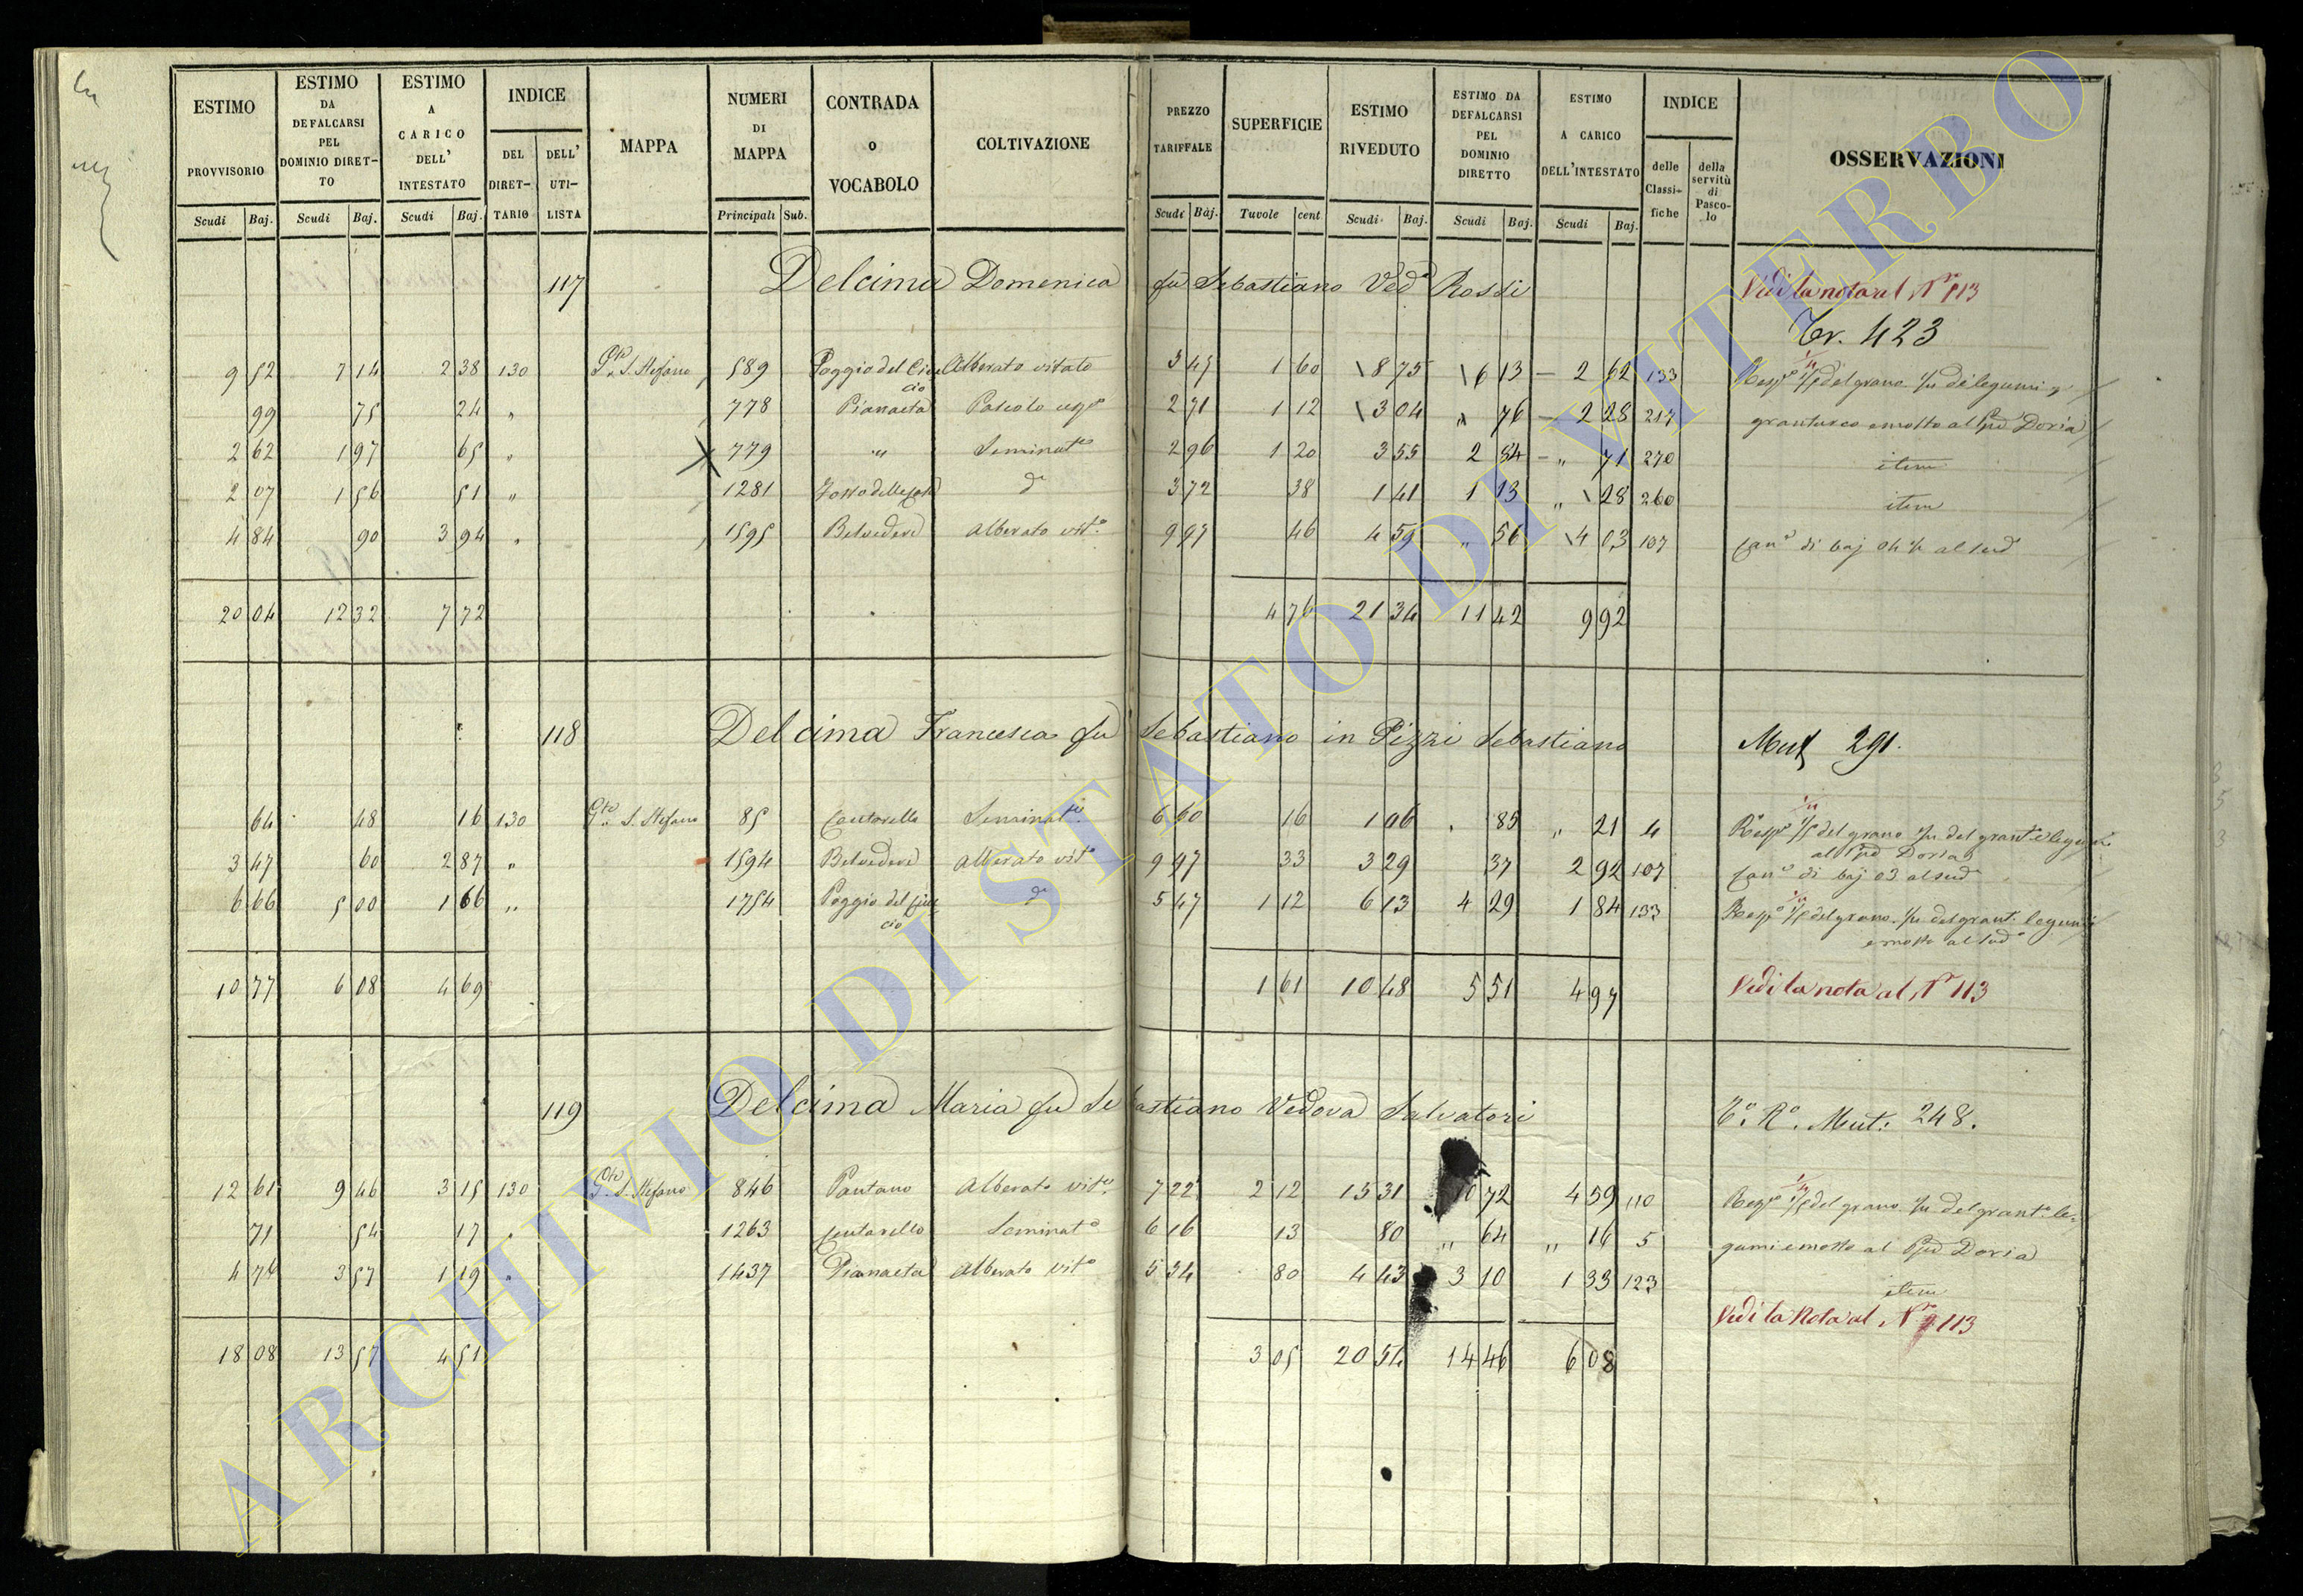 ESTIMO PROVVISORIO Scudi Baj.
ESTIMO DA DEFALCARSI PEL DOMINIO DIRETTO Scudi Baj.
ESTIMO A CARICO DELL' INTESTATO Scudi Baj.
INDICE DEL DIRETTARIO DELL' UTILISTA
MAPPA
NUMERI DI MAPPA Principali Sub.
CONTRADA o VOCABOLO
COLTIVAZIONE
PREZZO TARIFFALE Scudi Baj.
SUPERFICIE Tavole cent
ESTIMO RIVEDUTO Scudi Baj.
ESTIMO DA DEFALCARSI PEL DOMINIO DIRETTO Scudi Baj.
ESTIMO A CARICO DELL'INTESTATO Scudi Baj.
INDICE delle Classifiche della servitù di Pascolo
OSSERVAZIONI
117 Delcima Domenica fu Sebastiano Ved.a Rossi Vedi la nota al N.° 113
Tr. 423
9 52 7 14 2 38 130 S. Stefano 589 Poggio del Ciuccio Alberato vitato 5 47 1 60 8 75 6 13 2 62 133
99 75 24 " 778 Pianaeta Pascolo 2 71 1 12 3 04 " 76 2 28 217
2 62 1 97 65 " 779 " Seminat.o 2 96 1 20 3 55 2 84 " 71 270 item
2 07 1 56 51 " 1281 d.o 3 72 38 1 41 1 13 " 28 260 item
4 84 90 3 94 " 1595 Belvedere Alberato vit.o 9 97 46 4 59 " 56 4 03 107
20 04 12 32 7 72 4 76 21 34 11 42 9 92
118 Delcima Francesca fu Sebastiano in Pizzi Sebastiano Mut 291.
64 48 16 130 S. Stefano 85 Seminat.o 6 60 16 1 06 " 85 " 21 4
al Pd Doria
3 47 60 2 87 " 1594 Belvedere Alberato vit.o 9 97 33 3 29 37 2 92 107 Can.e di baj 03 al sud.o
6 66 5 00 1 66 " 1754 Poggio del Ciuccio d.o 5 47 1 12 6 13 4 29 1 84 133
e mosto al sud.o
10 77 6 08 4 69 1 61 10 48 5 51 4 97 Vedi la nota al N.° 113
119 Delcima Maria fu Sebastiano Vedova Salvatori Mut: 248.
12 61 9 46 3 15 130 S. Stefano 846 Pantano Alberato vit.o 7 22 2 12 15 31 10 72 4 59 110
71 54 17 " 1263 Seminat.o 6 16 13 80 " 64 " 16 5 gumi e mosto al Pd Doria
4 74 3 57 1 19 " 1437 Pianaeta Alberato vit.o 5 54 80 4 43 3 10 1 33 123 item
Vedi la Nota al N.° 113
18 08 13 57 4 51 3 05 20 54 14 46 6 08
ARCHIVIO DI STATO DI VITERBO